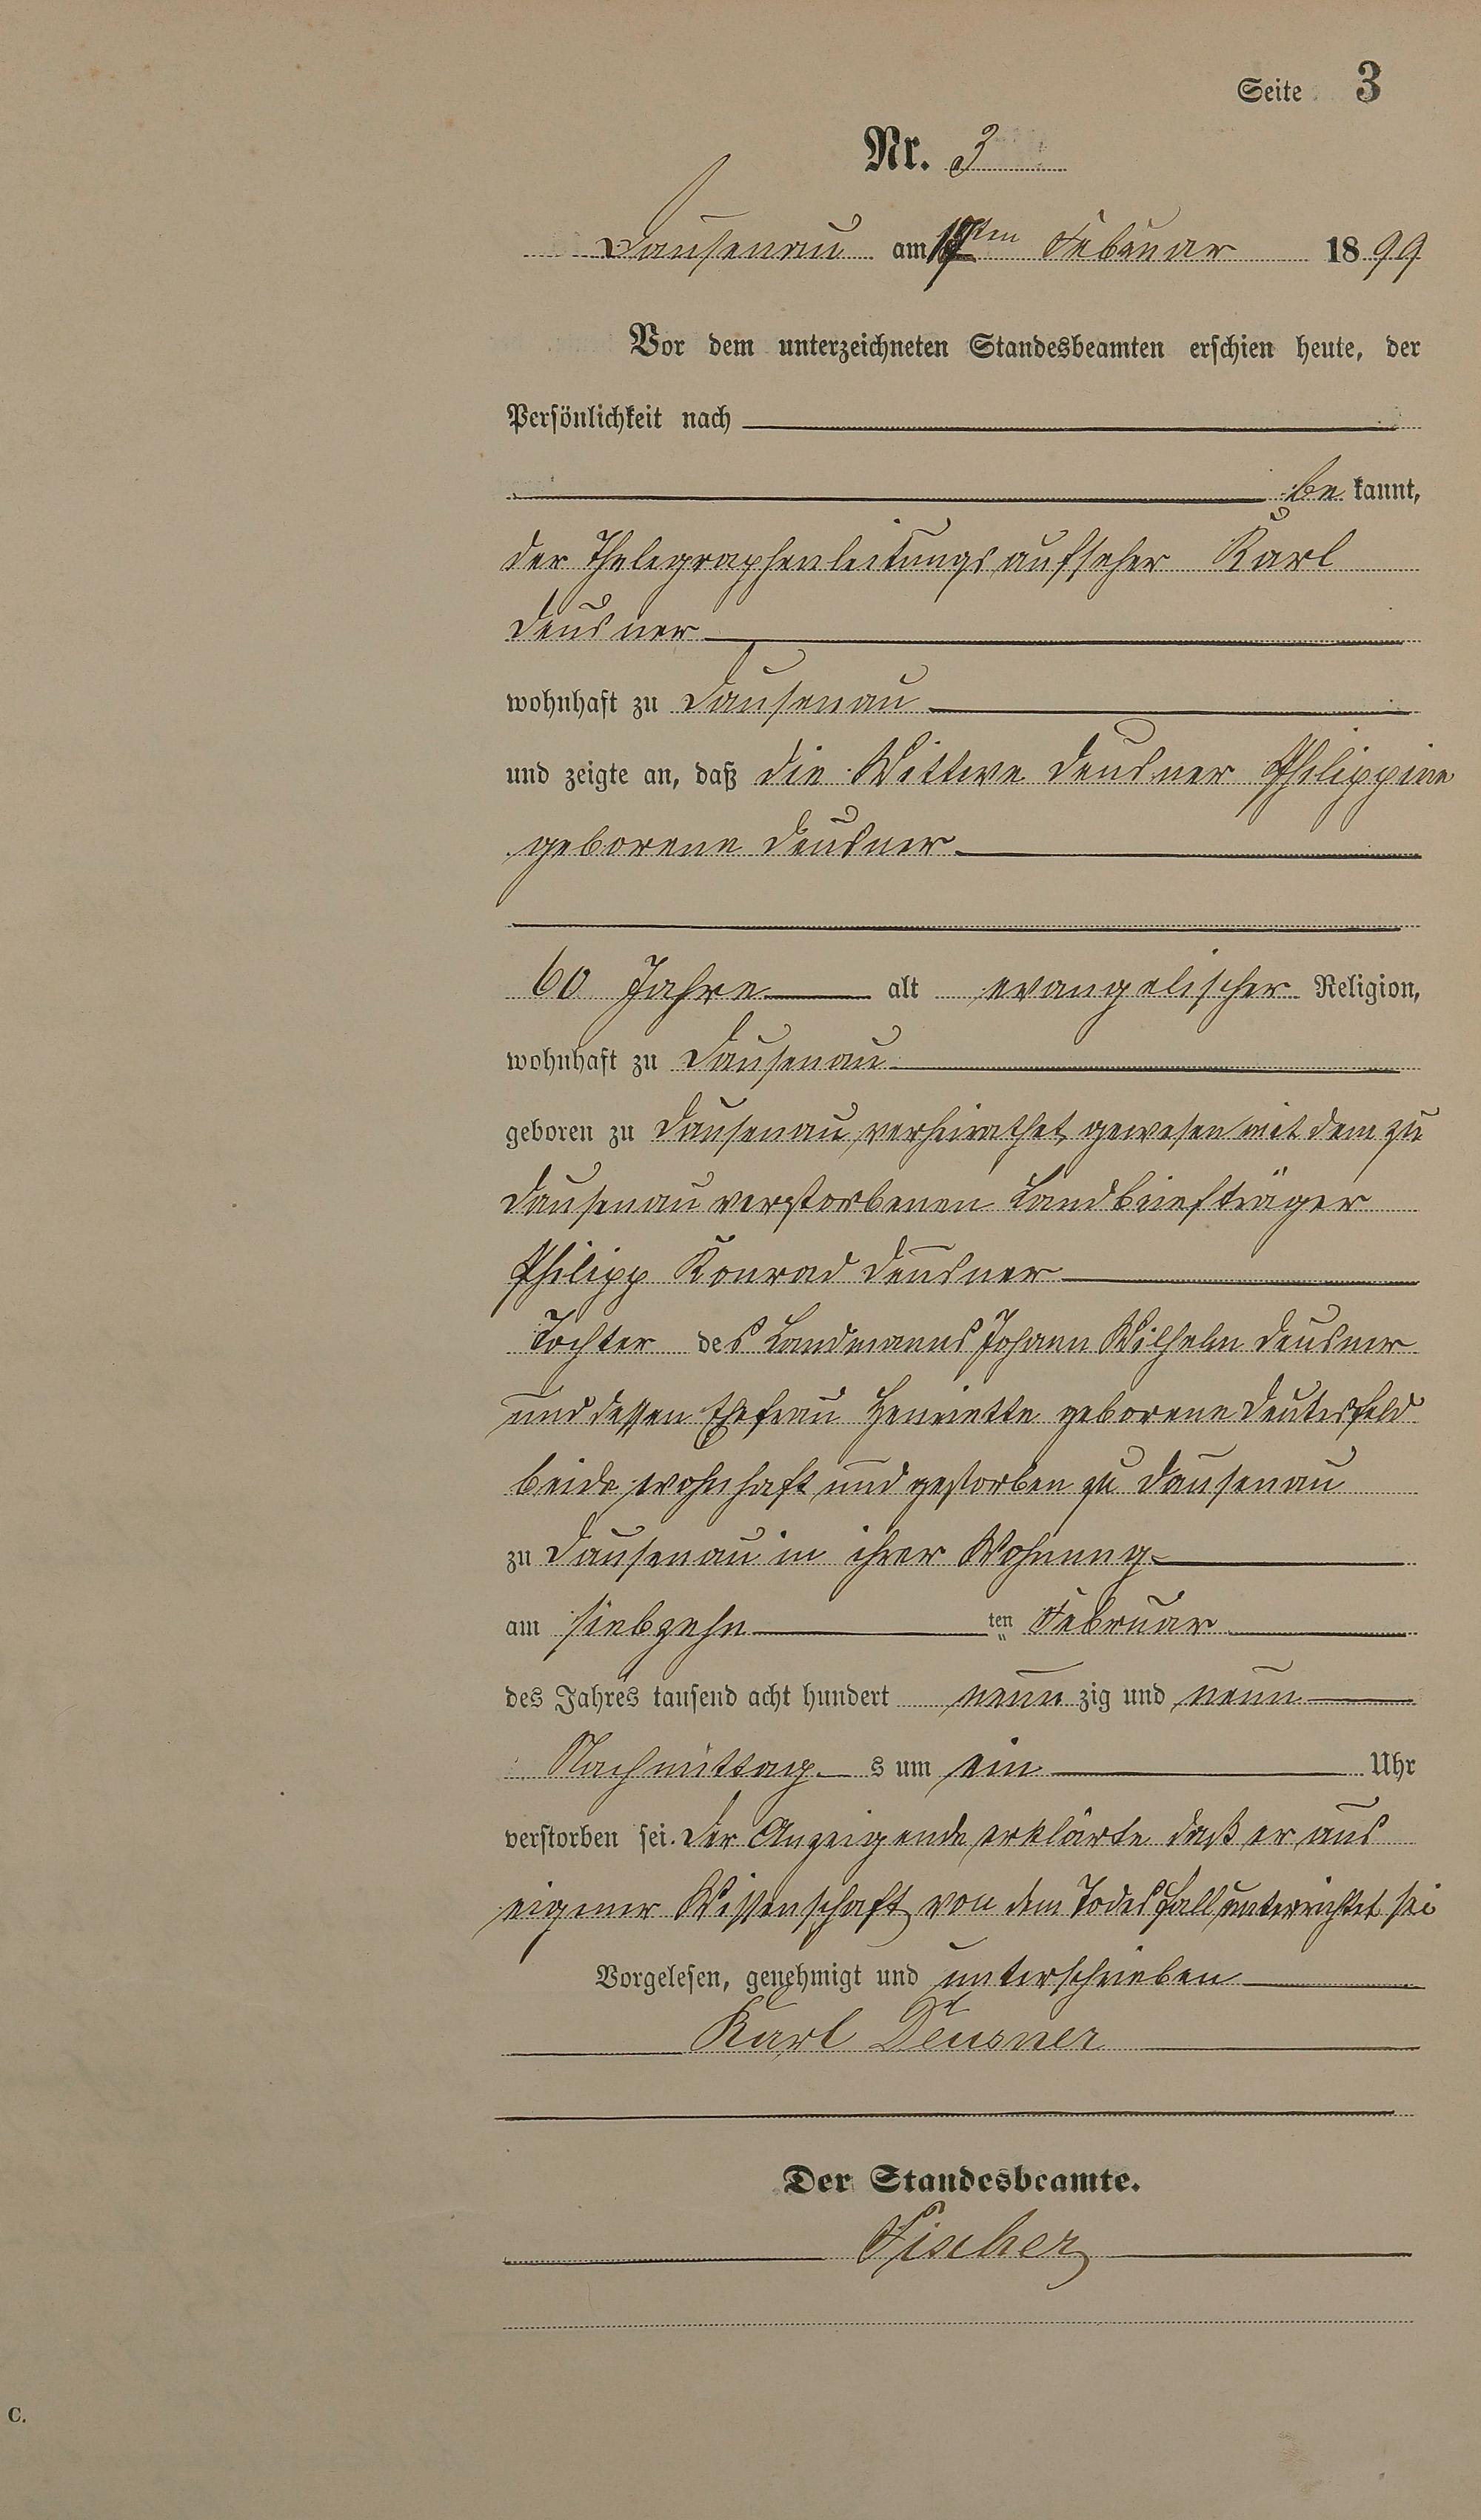 Seite 3
Nr. 3
Dausenau am ten Februar 1899
Vor dem unterzeichneten Standesbeamten erschien heute, der
Persönlichkeit nach
be kannt,
der Thelegraphenleitungsaufseher Karl
Deusner
wohnhaft zu Dausenau
und zeigte an, daß die Wittwe Deusner Philippine
geborene Deusner
60 Jahre alt evangelischer Religion,
wohnhaft zu Dausenau
geboren zu Dausenau verheirathet gewesen mit dem zu
Dausenau verstorbenen Landbriefträger
Philipp Konrad Deusner
Tochter des Landmanns Johann Wilhelm Deusner
und dessen Ehefrau Henriette geborene
beide wohnhaft und gestorben zu Dausenau
zu Dausenau in ihrer Wohnung
am siebzehn ten Februar
des Jahres tausend acht hundert neun zig und neun
Nachmittag s um ein Uhr
verstorben sei. Der Anzeigende erklärte daß er aus
eigener Wissenschaft von dem Todesfall unterrichtet sei
Vorgelesen, genehmigt und unterschrieben
Karl Deusner
Der Standesbeamte.
Fischer
C.